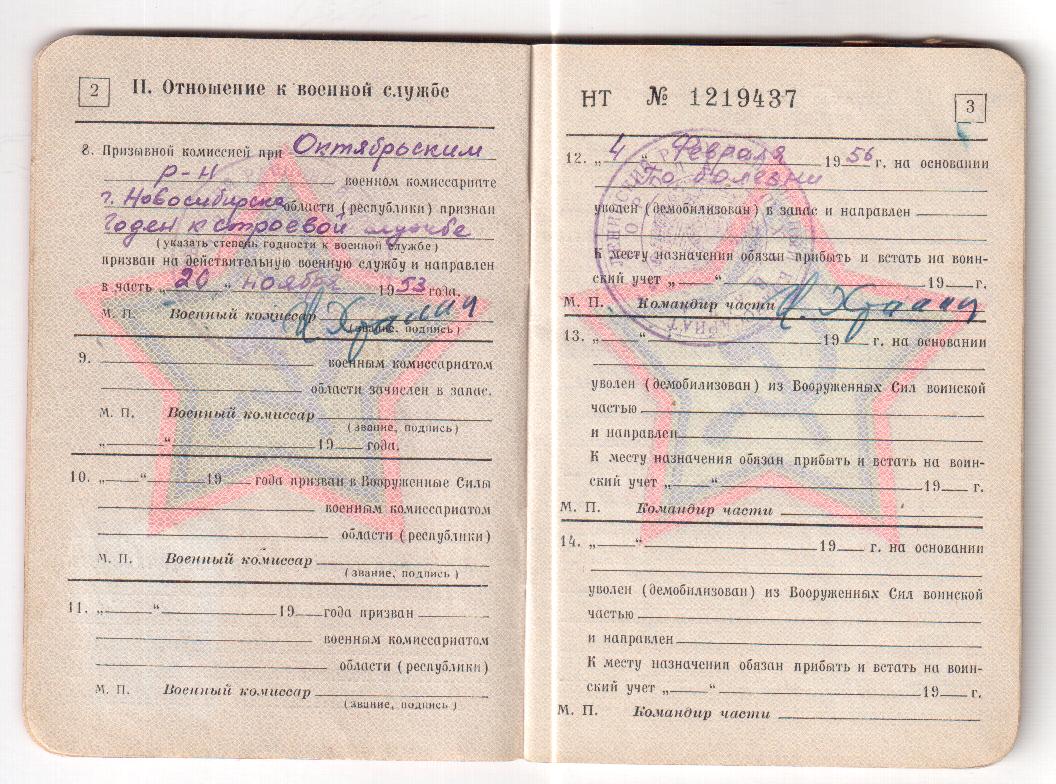 2
II. Отношение к военной службе
8. Призывной комиссией при Октябрьским
р-н военном комиссариате
г. Новосибирска области (республики) признан
Годен к строевой службе
(указать степень годности к военной службе)
призван на действительную военную службу и направлен
в часть „20“ ноября 1953 года.
М. П. Военный комиссар
(звание, подпись)
9. военным комиссариатом
области зачислен в запас.
М. П. Военный комиссар
(звание, подпись)
„ “ 19 года.
10. „ “ 19 года призван в Вооруженные Силы
военным комиссариатом
области (республики)
М. П. Военный комиссар
(звание, подпись)
11. „ “ 19 года призван
военным комиссариатом
области (республики)
М. П. Военный комиссар
(звание, подпись)
НТ № 1219437
3
12. „4“ Февраля 1956 г. на основании
По болезни
уволен (демобилизован) в запас и направлен
К месту назначения обязан прибыть и встать на воин-
ский учет „ “ 19 г.
М. П. Командир части
13. „ “ 19 г. на основании
уволен (демобилизован) из Вооруженных Сил воинской
частью
и направлен
К месту назначения обязан прибыть и встать на воин-
ский учет „ “ 19 г.
М. П. Командир части
14. „ “ 19 г. на основании
уволен (демобилизован) из Вооруженных Сил воинской
частью
и направлен
К месту назначения обязан прибыть и встать на воин-
ский учет „ “ 19 г.
М. П. Командир части